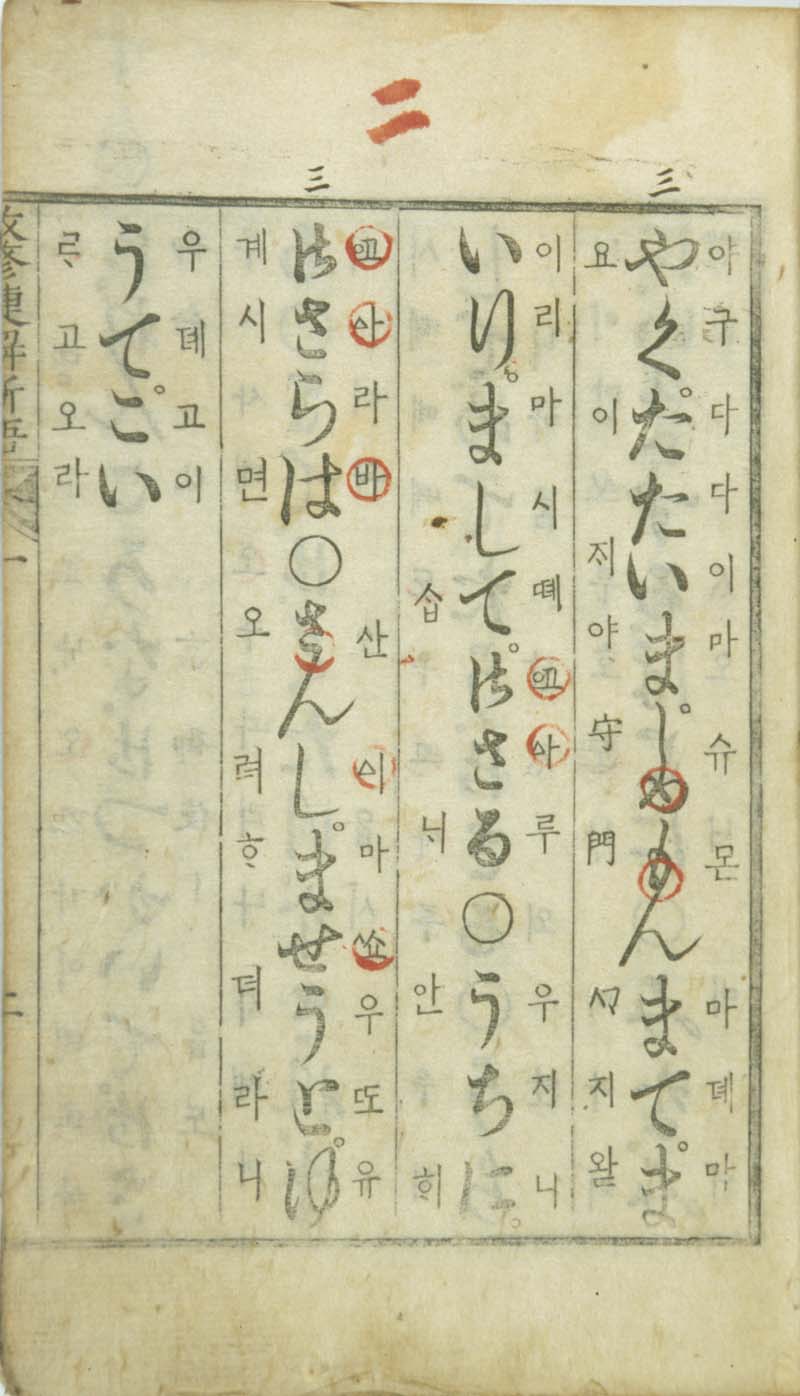 二
三
三
야구다다이마슈몬마뎨마
やくたたいましゆもんまてま
요이지야守門ᄭᆞ지왇
이리마시뗘사루우지니
いりまして御さる○うちに
ᄉᆞᆸᄂᆡ안ᄒᆡ
사라바산시마쇼우또유
御さらは○さんしませうとゆ
계시면오려ᄒᆞ더라니
우뎨고이
うてこい
ᄅᆞ고오라
改修捷解新語 一 二